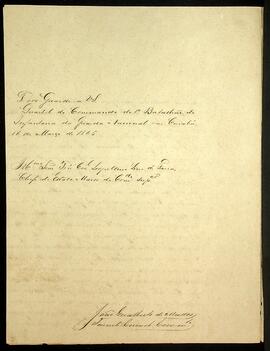 Deos Guarde a VS
Quartel do Commando do 1º Batalhão de
Infantaria da Guarda Nacional em Cuiabá,
16 de Março de 1865
Illmo Snr Tte Cel Leopoldino Lino de Faria,
Chefe do Estado Maior do Comdo Supor
João Gualberto de Mattos
Tenente Coronel Comm